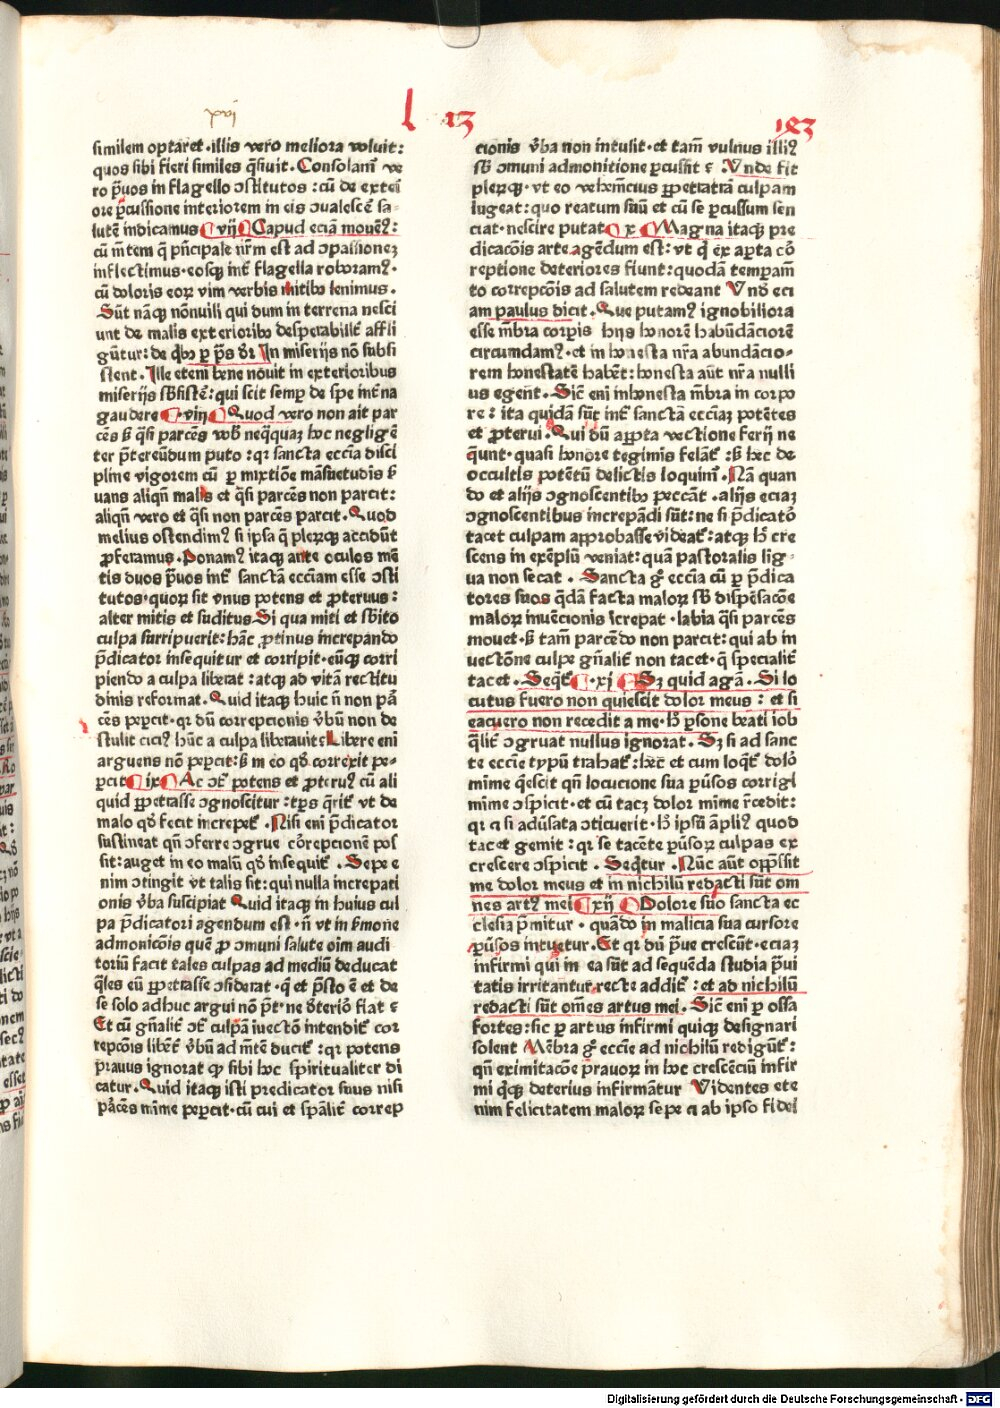 xvj
l 13
183
similem optaret·illis vero meliora voluit:
quos sibi fieri similes q̄siuit·Consolam̄ ve
ro p̄uos in flagello ↄstitutos:cū de exteri
ore p̄cussione interiorem in eis ↄualescē̄ sa-
lutē indicamus vij Capud eciā mouebꝰ:
cū mētem q̄ pn̄cipale nr̄m est ad ↄpassionez
inflectimus·eosqꝫ int̄ flagella roboramꝰ·
cū doloris eoꝝ vim verbis mitibꝰ lenimus.
Sūt nāqꝫ nōnulli qui dum in terrena nesci
unt de malis exterioribꝰ desperabilit̄ affli
gūtur:de qꝰ ꝑ p̄s dr̄ In miserijs nō subsi
stent. Ille etem bene nouit in exterioribus
miserijs sb̄sistē̄:qui scit semꝑ de spe int̄na
gaudere·viij Quod vero non ait par
cēs ꝭ q̄si parcēs vob̄ neq̄quaꝫ hoc negligē
ter p̄tereūdum puto:qꝛ sancta eccīa disci
pline vigorem cū ꝑ mixtiōe māsuetudis ꝭ
uans aliqn̄ malis et q̄si parcēs non parcit:
aliqn̄ vero et q̄si non parcēs parcit.Quod
melius ostendimꝰ si ipsa q̄ pleꝝqꝫ accidūt
ꝓferamus.Ponamꝰ itaqꝫ ante oculos mē
tis duos p̄uos int̄ sanctā eccīam esse ↄsti
tutos·quoꝝ sit vnus potens et ꝓteruus:
alter mitis et suditus Si qua miti et sb̄ito
culpa surripuerit:hāc ꝓtinus increpando
p̄dicator insequitur et corripit·eūqꝫ corri
piendo a culpa liberat:atqꝫ ad vitā rectitu
dinis reformat.Quid itaqꝫ huic n̄ non pā
cēs peꝑcit·qꝛ dū correpcionis v̄bū non de
stulit ciciꝰ hūc a culpa liberauit Libere eni
arguens nō peꝑcit:ꝭ in eo qd̄ correxit pe-
ꝑcit ix Ac ↄt̄ potens et ꝓteruꝰ cū ali
quid ꝑpetrasse ↄgnoscitur:tp̄s q̄rit̄ vt de
malo qd̄ fecit increpet̄.Nisi eni p̄dicator
sustineat qn̄ ↄferre ↄgrue cōrepcionē pos
sit:auget in eo malū qd̄ insequit̄.Sepe e
nim ↄtingit vt talis sit:qui nulla increpati
onis v̄ba suscipiat Quid itaqꝫ in huius cul
pa p̄dicatori agendum est·n̄ vt in ẜmone
admonicōis quē ꝓ ↄmuni salute oīm audi
toriū facit tales culpas ad mediū deducat
q̄les eū ꝑpetrasse ↄsiderat·q̄ et p̄sto ē et de
se solo adhuc argui nō p̄t·ne d̄teriꝰ fiat
Et cū gn̄alit̄ ↄt̄ culpā iuectō intendit̄ cor
repcōis libēt̄ v̄bū ad mētē ducit̄:qꝛ potens
prauus ignorat ꝙ sibi hoc spiritualiter di
catur.Quid itaqꝫ isti predicator suus nisi
pācēs mime peꝑcit·cū cui et sp̄alit̄ correp
cionis v̄ba non intulit·et tam̄ vulnus illiꝰ
sb̄ ↄmuni admonitione ꝑcussit. Vnde fit
pleꝝqꝫ·vt eo vehemēcius ꝑpetratā culpam
lugeat:quo reatum suū et cū se ꝑcussum sen
ciat·nescire putat x Magna itaqꝫ pre
dicacōis arte agendum est:vt q̄ ex aꝑta cō
reptione deteriores fiunt:quodā tempam̄
to correpcōis ad salutem redeant Vnd̄ eci
am paulus dicit.Que putamꝰ ignobiliora
esse mēbra corpis hijs honorē habūdāciorē
circumdamꝰ·et in honesta nr̄a abundācio-
rem honestatē habēt:honesta aūt nr̄a nulli
us egent.Sic̄ eni inhonesta mēbra in corpo
re:ita quidā sūt int̄ sanctā eccīaꝫ potētes
et ꝓterui.Qui dū aꝑta vectione feriij ne
q̄unt·quasi honore tegimīs felant̄:ꝭ hec de
occultis potētū delictis loquim̄.Nā quan
do et alijs ↄgnoscentibꝰ peccāt·alijs eciaꝫ
ↄgnoscentibus increpādi sūt:ne si p̄dicatō
tacet culpam approbasse videat̄:atqꝫ h̄ cre
scens in exēplū veniat:quā pastoralis lig-
ua non secat. Sancta gͦ eccīa cū ꝑ p̄dica
tores suos q̄dā facta maloꝝ sb̄ dispēsacōe
maloꝝ inuēcionis īcrepat·labia q̄si parcēs
mouet·ꝭ tam̄ parcēdo non parcit:qui ab in
uectōne culpe gn̄alit̄ non tacet·q̄ specialit̄
tacet.Seqt̄ xj Sꝫ quid agā.Si lo
cutus fuero non quiescit dolor meus:et si
eacuero non recedit a me·h̄ ꝑsone beati iob
q̄lit̄ ↄgruat nullus ignorat.Sꝫ si ad sanc
te eccīe typū trahat̄:hec et cum loqt̄ dolō
mime q̄escit qn̄ locucione sua ꝑuīsos corrigi
mime ↄspicit·et cū tacꝫ dolor mime r̄cedit:
qꝛ a si adūsata ↄticuerit·h̄ ipsū āpliꝰ quod
tacet gemit:qꝛ se tacēte ꝑūsoꝝ culpas ex
crescere ↄspicit. Seqtur.Nūc aūt opp̄ssit
me dolor meus et in nichilū redacti sūt om
nes artꝰ mei xij Dolore suo sancta ec
clesia p̄mitur·quādo in malicia sua cursore
ꝑūsos intuetur.Et qꝛ dū p̄ue crescūt·eciaꝫ
infirmi qui in ea sūt ad sequēda studia p̄ui
tatis irritantur·recte addit̄:et ad nichilū
redacti sūt om̄es artus mei.Sic̄ eni ꝑ ossa
fortes:sic ꝑ artus infirmi quiqꝫ designari
solent Mēbra gͦ eccīe ad nichilū redigūt̄:
qn̄ eximitacōe p̄rauoꝝ in hoc crescēciū infir
mi q̄qꝫ deterius infirmātur Videntes ete
nim felicitatem maloꝝ sepe a ab ipso fidei
Digitalisierung gefördert durch die Deutsche Forschungsgemeinschaft · DFG